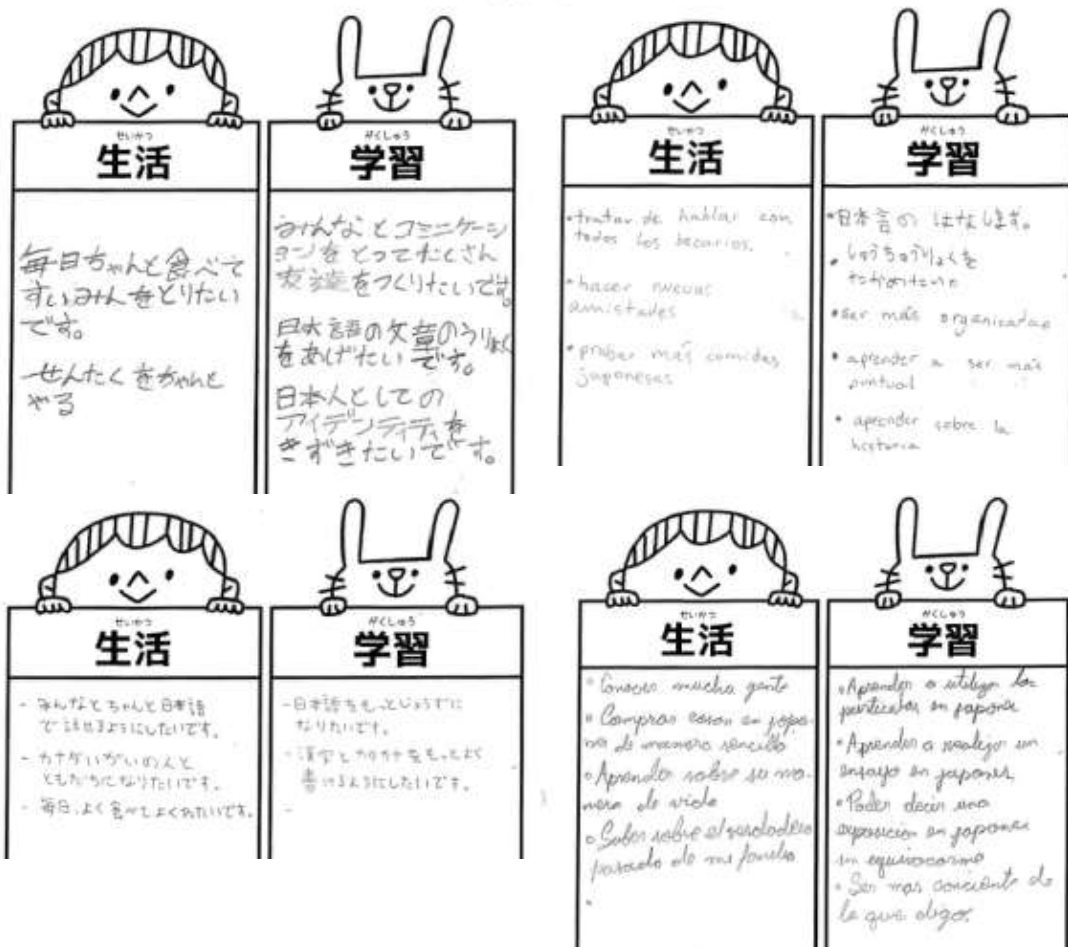 せいかつ
生活
毎日ちゃんと食べて
すいみんをとりたい
です。
せんたくをちゃんと
やる
がくしゅう
学習
みんなとコミニケーシ
ョンをとってたくさん
友達をつくりたいです。
日本語の文章のうりょく
をあげたいです。
日本人としての
アイデンティティを
きずきたいです。
せいかつ
生活
• tratar de hablar con
todos los becarios.
• hacer nuevas
amistades
• probar más comidas
japonesas
がくしゅう
学習
• 日本言の はなします。
• しゅうちゅうりょくを
• ser más organizado
• aprender a ser más
puntual
• aprender sobre la
historia
せいかつ
生活
- みんなとちゃんと日本語
で話せるようにしたいです。
- カナダいがいの人と
ともだちになりたいです。
- 毎日、よく食べてよくねたいです。
がくしゅう
学習
- 日本語をもっとじょうずに
なりたいです。
- 漢字とカタカナをもっとよく
書けるようにしたいです。
-
せいかつ
生活
• Conocer mucha gente
• Comprar cosas en japo-
nes de manera sencilla
• Aprender sobre su ma-
nera de vida
• Saber sobre el verdadero
pasado de mi familia
•
がくしゅう
学習
• Aprender a utilizar las
particulas en japones
• Aprender a realizar un
ensayo en japones
• Poder decir una
exposicion en japones
sin equivocarme
• Ser mas conciente de
lo que digo.